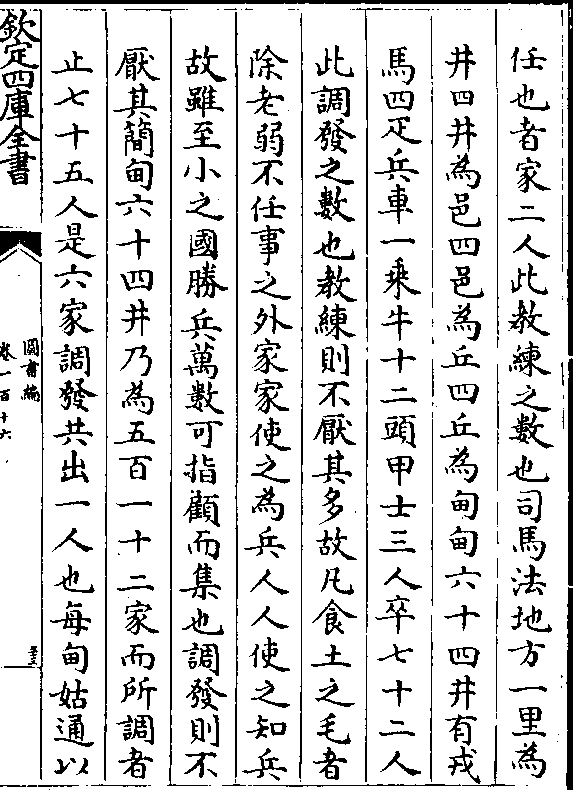 任也者家二人此教練之數也司馬法地方一里為
井四井為邑四邑為丘四丘為甸甸六十四井有戎
馬四疋兵車一乘牛十二頭甲士三人卒七十二人
此調發之數也教練則不厭其多故凡食土之毛者
除老弱不任事之外家家使之為兵人人使之知兵
故雖至小之國勝兵萬數可指顧而集也調發則不
厭其簡甸六十四井乃為五百一十二家而所調者
止七十五人是六家調發共出一人也每甸姑通以
欽定四庫全書
圖書編
卷一百十六